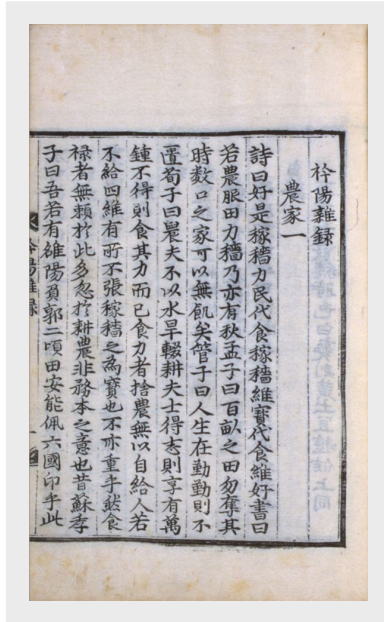 衿陽雜録
農家一
詩曰好是稼穡力民代食稼穡維寶代食維好書曰
若農服田力穡乃亦有秋孟子曰百畝之田勿奪其
時数口之家可以無飢矣管子曰人生在勤勤則不
匱荀子曰農夫不以水旱輟耕夫士得志則享有萬
鍾不得則食其力而已食力者捨農無以自給人若
不給四維有所不張稼穡之為寶也不亦重乎然食
禄者無頼於此多忽於耕農非務本之意也昔蘇季
子曰吾若有雒陽負郭二頃田安能佩六國印乎此
衿陽雜録 一